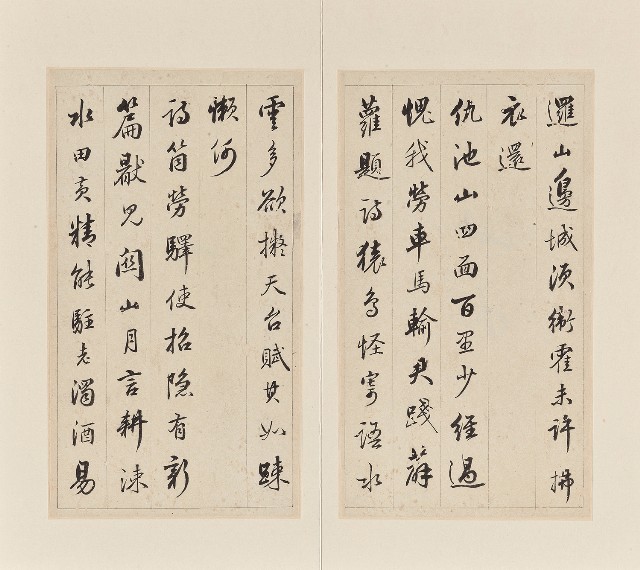 邏山邊城須衛霍未許拂
衣還
仇池山四面百里少經過
愧我勞車馬輸君踐薜
蘿題詩猿鳥怪寄語水
雲多欲擬天台賦其如踈
懶何
詩筒勞驛使招隐有新
篇嚴兄關山月言耕涑
水田黄精能駐老濁酒易